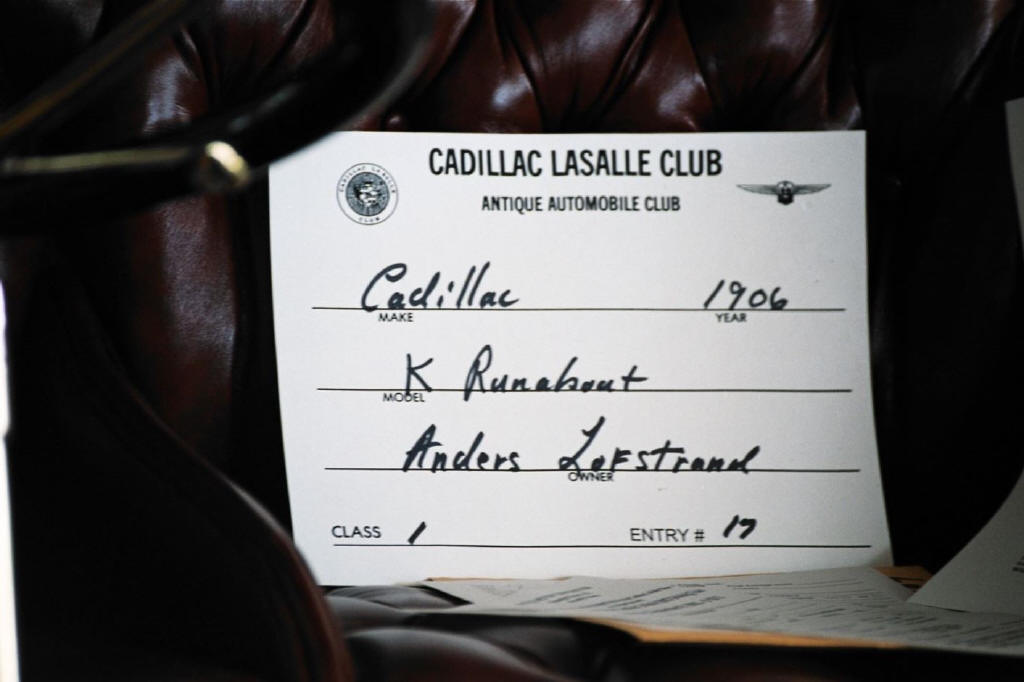 CADILLAC LASALLE CLUB
ANTIQUE AUTOMOBILE CLUB
CADILLAC LASALLE
CLUB
Cadillac 1906
MAKE YEAR
K Runabout
MODEL
Anders Lofstrand
OWNER
CLASS 1 ENTRY # 17